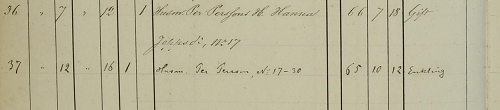 36 " 7 " 12 1 Husm. Per Persons H. Hanna 66 7 18 Gift
Jeppsdr, No 17
37 " 12 " 16 1 Husm. Per Persson, No 17-30 65 10 12 Enkling